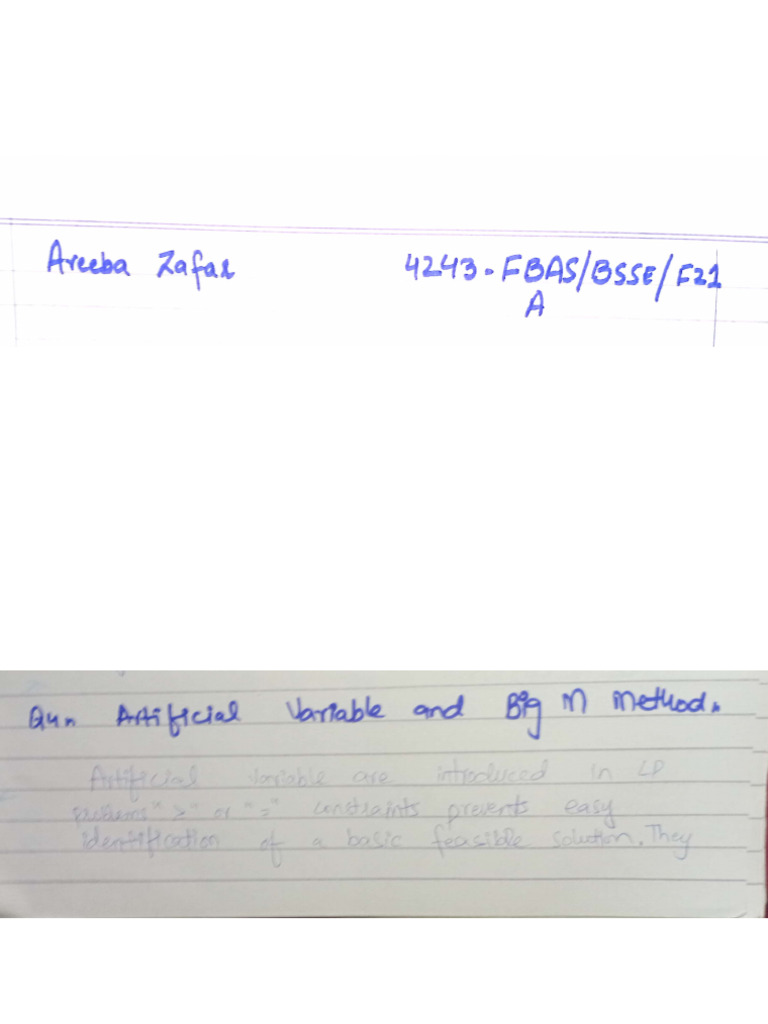 Areeba Zafar
4243-FBAS/BSSE/F21
A
Q4:- Artificial Variable and Big M Method.
Artificial variable are introduced in LP
problems ">" or "=" constraints prevents easy
identification of a basic feasible solution. They